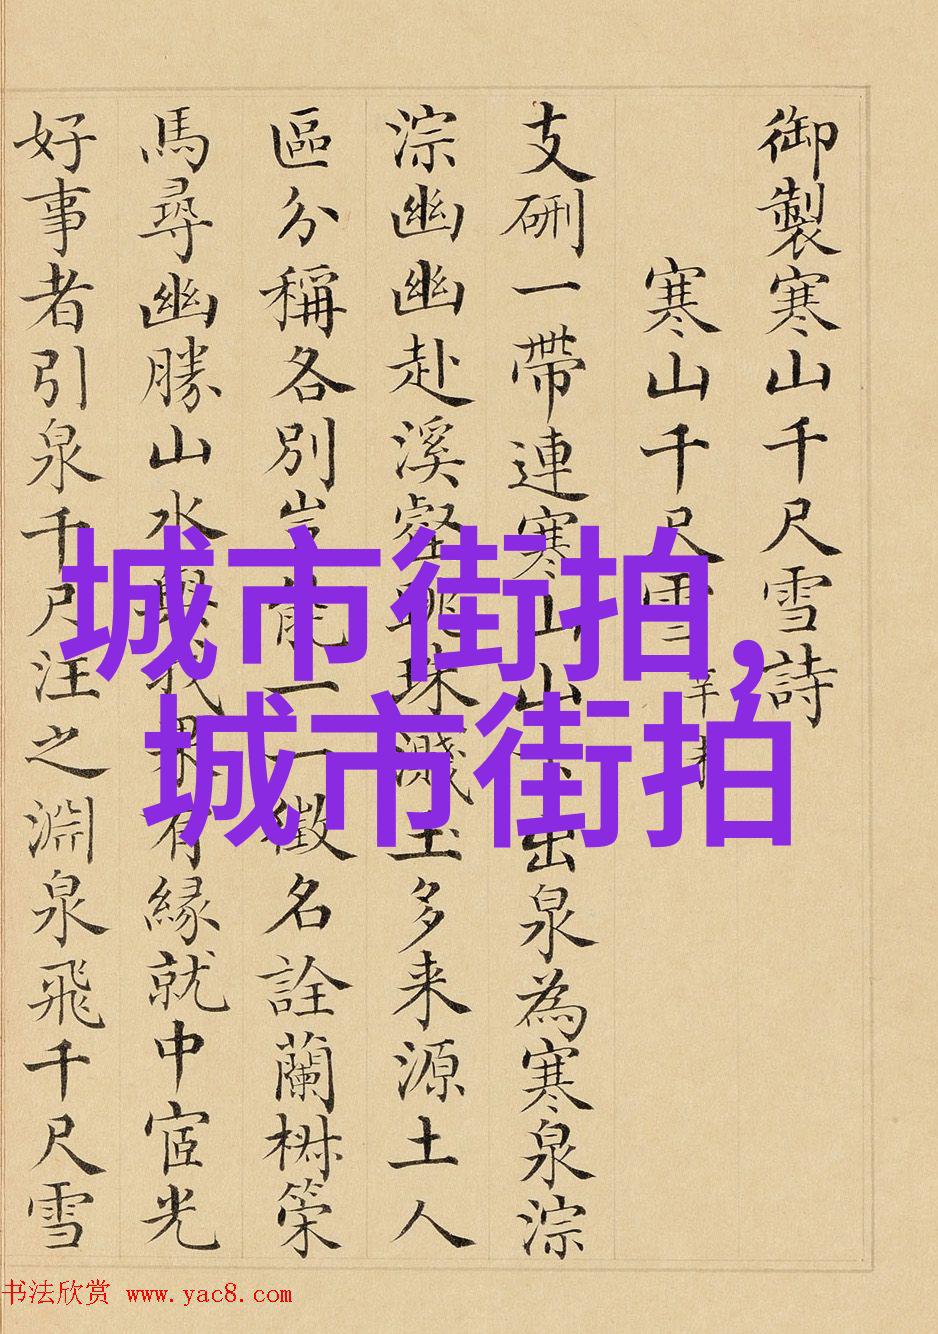 御製寒山千尺雪詩
寒山千尺雪 辛未
支硎一帶連寒山山下出泉為寒泉淙
淙幽幽赴溪壑跳珠濺玉多来源土人
區分稱各別豈能一一徵名詮蘭椒策
馬尋幽勝山水與我果有緣就中宧光
好事者引泉千尺注之淵泉飛千尺雪
城市街拍,
城市街拍
书法欣赏 www.yac8.com